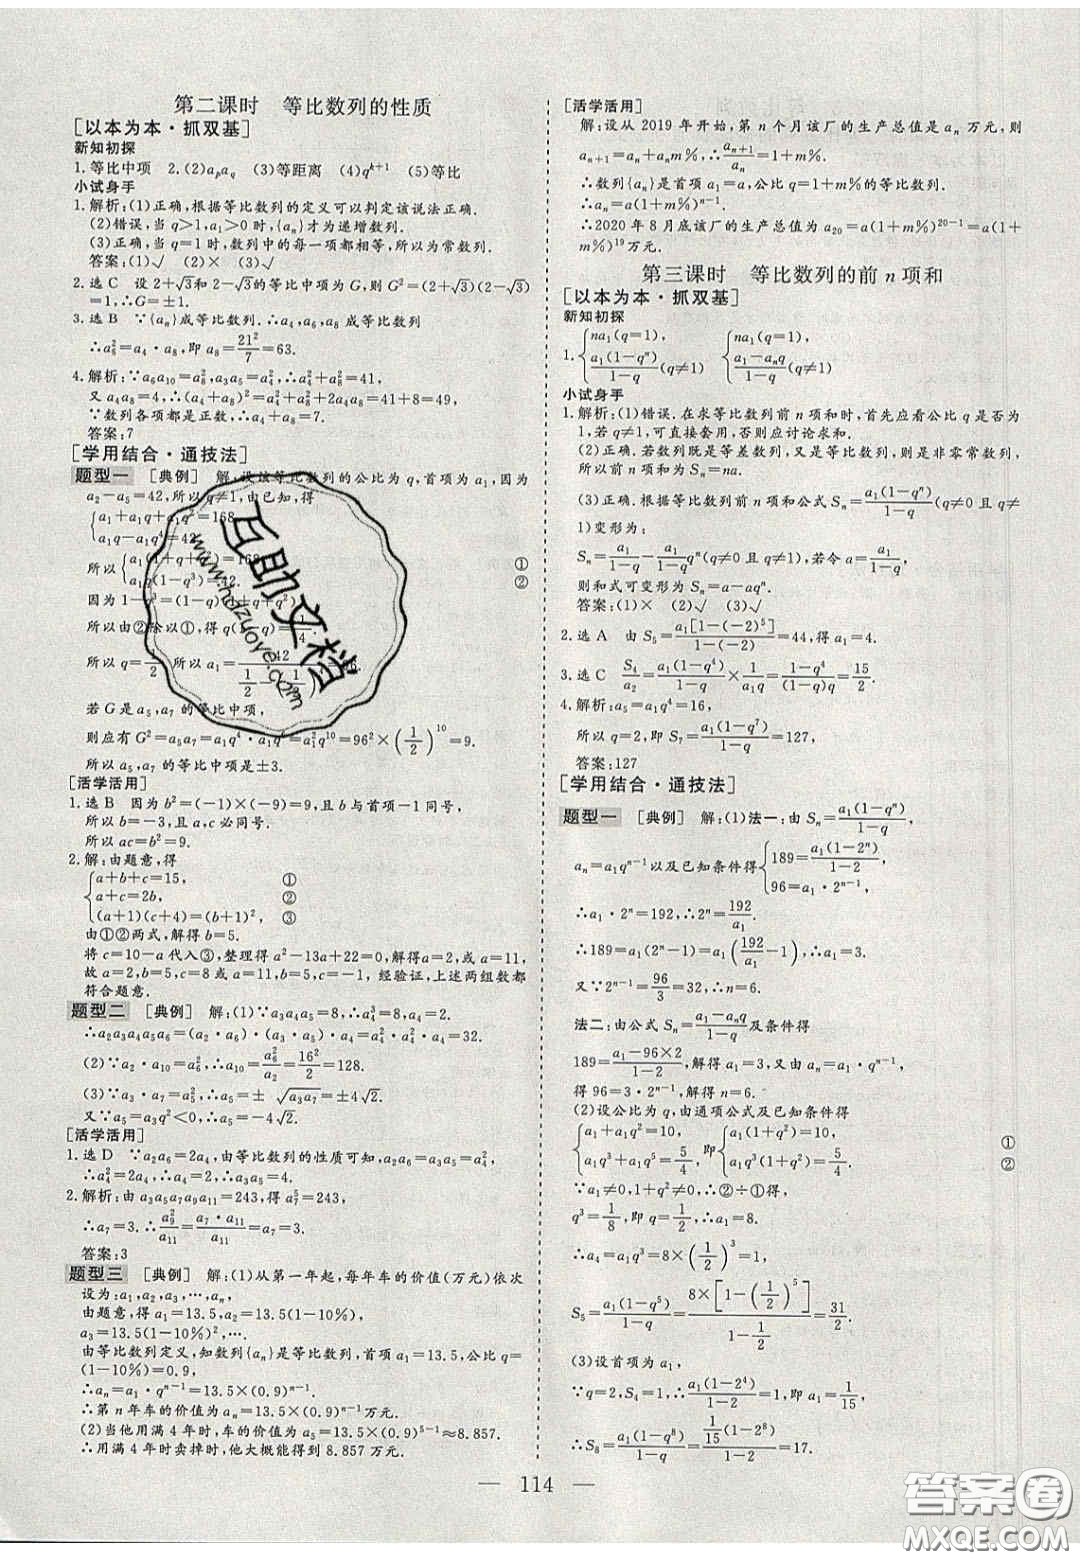 第二课时　等比数列的性质
[以本为本·抓双基]
新知初探
1.等比中项　2.(2)aₚa_q　(3)等距离　(4)q^{k+1}　(5)等比
小试身手
1.解析:(1)正确,根据等比数列的定义可以判定该说法正确.
(2)错误,当q>1,a₁>0时,{aₙ}才为递增数列.
(3)正确,当q=1时,数列中的每一项都相等,所以为常数列.
答案:(1)√　(2)×　(3)√
2.选C　设2+√3和2-√3的等比中项为G,则G²=(2+√3)(2-√3)
=1,∴G=±1.
3.选B　∵{aₙ}成等比数列.∴a₄,a₆,a₈成等比数列
∴a₆²=a₄·a₈,即a₈=21²/7=63.
4.解析:∵a₆a₁₀=a₈²,a₃a₅=a₄²,∴a₄²+a₈²=41,
又a₄a₈=4,∴(a₄+a₈)²=a₄²+a₈²+2a₄a₈=41+8=49,
∵数列各项都是正数,∴a₄+a₈=7.
答案:7
[学用结合·通技法]
题型一　[典例]　解:设该等比数列的公比为q,首项为a₁,因为
a₂-a₅=42,所以q≠1,由已知,得
{a₁+a₁q+a₁q²=168,
a₁q-a₁q⁴=42.
所以{a₁(1+q+q²)=168　①
a₁q(1-q³)=42.　②
因为1-q³=(1-q)(1+q+q²)
所以由②除以①,得q(1-q)=1/4.
所以q=1/2　所以a₁=42/(1/2-(1/2)⁴)=96.
若G是a₅,a₇的等比中项,
则应有G²=a₅a₇=a₁q⁴·a₁q⁶=a₁²q¹⁰=96²×(1/2)¹⁰=9.
所以a₅,a₇的等比中项是±3.
[活学活用]
1.选B　因为b²=(-1)×(-9)=9,且b与首项-1同号,
所以b=-3,且a,c必同号.
所以ac=b²=9.
2.解:由题意,得
{a+b+c=15,　①
a+c=2b,　②
(a+1)(c+4)=(b+1)²,　③
由①②两式,解得b=5.
将c=10-a代入③,整理得a²-13a+22=0,解得a=2,或a=11,
故a=2,b=5,c=8或a=11,b=5,c=-1,经验证,上述两组数都
符合题意.
题型二　[典例]　解:(1)∵a₃a₄a₅=8,∴a₄³=8,a₄=2.
∴a₂a₃a₄a₅a₆=(a₂·a₆)·(a₃·a₅)·a₄=a₄²·a₄²·a₄=a₄⁵=32.
(2)∵a₂·a₁₀=a₆²,∴a₁₀=a₆²/a₂=16²/2=128.
(3)∵a₃·a₇=a₅²,∴a₅=±√(a₃a₇)=±4√2.
又∵a₅=a₃q²<0,∴a₅=-4√2.
[活学活用]
1.选D　∵a₂a₆=2a₄,由等比数列的性质可知,a₂a₆=a₃a₅=a₄²,
∴a₄²=2a₄,∴a₄=2.
2.解析:由a₃a₅a₇a₉a₁₁=243,得a₇⁵=243,
∴a₇=3,∴a₉²/a₁₁=a₇·a₁₁/a₁₁=a₇=3.
答案:3
题型三　[典例]　解:(1)从第一年起,每年车的价值(万元)依次
设为:a₁,a₂,a₃,…,aₙ,
由题意,得a₁=13.5,a₂=13.5(1-10%),
a₃=13.5(1-10%)²,….
由等比数列定义,知数列{aₙ}是等比数列,首项a₁=13.5,公比q=
(1-10%)=0.9,
∴aₙ=a₁·qⁿ⁻¹=13.5×(0.9)ⁿ⁻¹.
∴第n年车的价值为aₙ=13.5×(0.9)ⁿ⁻¹万元.
(2)当他用满4年时,车的价值为a₅=13.5×(0.9)⁵⁻¹≈8.857.
∴用满4年时卖掉时,他大概能得到8.857万元.
[活学活用]
解:设从2019年开始,第n个月该厂的生产总值是aₙ万元,则
aₙ₊₁=aₙ+aₙm%,∴aₙ₊₁/aₙ=1+m%.
∴数列{aₙ}是首项a₁=a,公比q=1+m%的等比数列.
∴aₙ=a(1+m%)ⁿ⁻¹.
∴2020年8月底该厂的生产总值为a₂₀=a(1+m%)²⁰⁻¹=a(1+
m%)¹⁹万元.
第三课时　等比数列的前n项和
[以本为本·抓双基]
新知初探
1.{na₁(q=1),　a₁(1-qⁿ)/(1-q)(q≠1)　{na₁(q=1),　(a₁-aₙq)/(1-q)(q≠1)
小试身手
1.解析:(1)错误.在求等比数列前n项和时,首先应看公比q是否为
1,若q≠1,可直接套用,否则应讨论求和.
(2)正确.若数列既是等差数列,又是等比数列,则是非零常数列,
所以前n项和为Sₙ=na.
(3)正确.根据等比数列前n项和公式Sₙ=a₁(1-qⁿ)/(1-q)(q≠0且q≠
1)变形为:
Sₙ=a₁/(1-q)-a₁/(1-q)qⁿ(q≠0且q≠1),若令a=a₁/(1-q),
则和式可变形为Sₙ=a-aqⁿ.
答案:(1)×　(2)√　(3)√
2.选A　由S₅=a₁[1-(-2)⁵]/(1-(-2))=44,得a₁=4.
3.选C　S₄/a₂=a₁(1-q⁴)/(1-q)×1/(a₁q)=(1-q⁴)/((1-q)q)=15/2.
4.解析:a₅=a₁q⁴=16,
∵q=2,∴a₁=1,即S₇=a₁(1-q⁷)/(1-q)=127,
答案:127
[学用结合·通技法]
题型一　[典例]　解:(1)法一:由Sₙ=a₁(1-qⁿ)/(1-q),
aₙ=a₁qⁿ⁻¹以及已知条件得{189=a₁(1-2ⁿ)/(1-2)
96=a₁·2ⁿ⁻¹,
∴a₁·2ⁿ=192,∴2ⁿ=192/a₁.
∴189=a₁(2ⁿ-1)=a₁(192/a₁-1),∴a₁=3.
又∵2ⁿ⁻¹=96/3=32,∴n=6.
法二:由公式Sₙ=(a₁-aₙq)/(1-q)及条件得
189=(a₁-96×2)/(1-2),解得a₁=3,又由aₙ=a₁·qⁿ⁻¹,
得96=3·2ⁿ⁻¹,解得n=6.
(2)设公比为q,由通项公式及已知条件得
{a₁+a₁q²=10,　a₁q³+a₁q⁵=5/4,　即{a₁(1+q²)=10,　①
a₁q³(1+q²)=5/4.　②
∵a₁≠0,1+q²≠0,∴②÷①得,
q³=1/8,即q=1/2,∴a₁=8.
∴a₄=a₁q³=8×(1/2)³=1,
S₅=a₁(1-q⁵)/(1-q)=8×[1-(1/2)⁵]/(1-1/2)=31/2.
(3)设首项为a₁,
∵q=2,S₄=1,∴a₁(1-2⁴)/(1-2)=1,即a₁=1/15,
∴S₈=a₁(1-q⁸)/(1-q)=(1/15)(1-2⁸)/(1-2)=17.
— 114 —
互助文档
www.huzuowe.com
答案圈
MXQE.COM